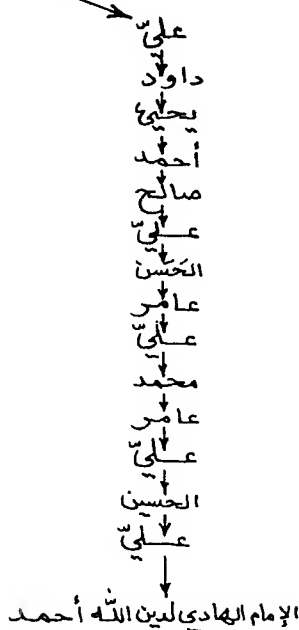 عليّ
داود
يحيى
أحمد
صالح
عليّ
الحَسَن
عامر
عليّ
محمد
عامر
عليّ
الحسين
عليّ
الإمام الهادي لدين الله أحمد